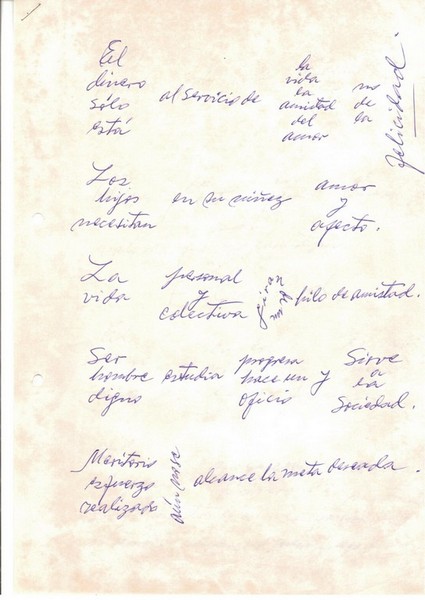 El
dinero
sólo
está
al servicio de
la
vida
la
amistad
del
amor
no
de
la
felicidad.
Los
hijos
necesitan
en su niñez
amor
y
afecto.
La
vida
personal
y
colectiva
hilo de amistad.
Ser
hombre
digno
estudia
progresa
hace un
oficio
y
Sirve
a
la
Sociedad.
Meritorio
esfuerzo
realizado
aún no se
alcance la meta deseada.